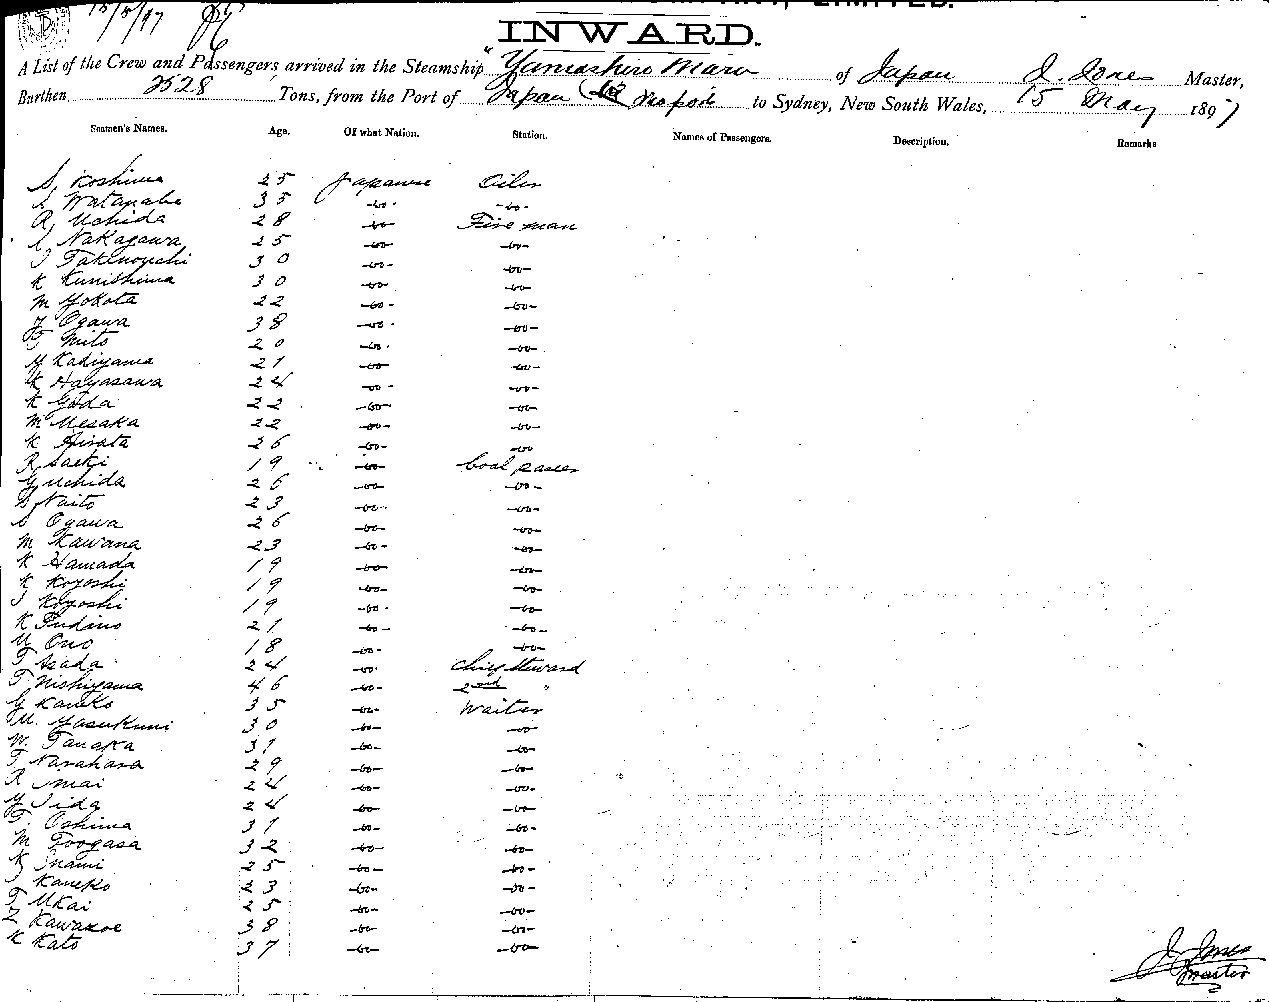 LIMITED.
15/5/97
INWARD.
A List of the Crew and Passengers arrived in the Steamship "Yamashiro Maru of Japan J. Jones Master,
Burthen 2528 Tons, from the Port of Japan to Sydney, New South Wales, 15 May 1897
Seamen's Names. Age. Of what Nation. Station. Names of Passengers. Description. Remarks
S. Koshima 25 Japanese Oiler
S Watanabe 35 -do- -do-
R, Uchida 28 -do- Fire man
I Nakagawa 25 -do- -do-
I Takenouchi 30 -do- -do-
K Kunishima 30 -do- -do-
M Yokota 22 -do- -do-
Y Ogawa 38 -do- -do-
T Mito 20 -do- -do-
Y Kadiyama 21 -do- -do-
K Hayasawa 24 -do- -do-
K Goda 22 -do- -do-
M Mesaka 22 -do- -do-
K Hirata 26 -do- -do-
R Saeki 19 -do- Coal passer
Y Uchida 26 -do- -do-
S Naito 23 -do- -do-
S Ogawa 26 -do- -do-
M Kawana 23 -do- -do-
K Hamada 19 -do- -do-
K Koyoshi 19 -do- -do-
I Koyoshi 19 -do- -do-
K Fudino 21 -do- -do-
U Ono 18 -do- -do-
T Asada 24 -do- Chief Steward
T Nishiyama 46 -do- 2nd "
G Kaneko 35 -do- Waiter
U. Yasukuni 30 -do- -do-
W. Tanaka 31 -do- -do-
T Narahara 29 -do- -do-
R Imai 24 -do- -do-
Y Iida 24 -do- -do-
T. Oshima 31 -do- -do-
M Toogasa 32 -do- -do-
K Inami 25 -do- -do-
I Kaneko 23 -do- -do-
T Ukai 25 -do- -do-
Z Kawazoe 38 -do- -do-
K Kato 37 -do- -do-
J. Jones
Master